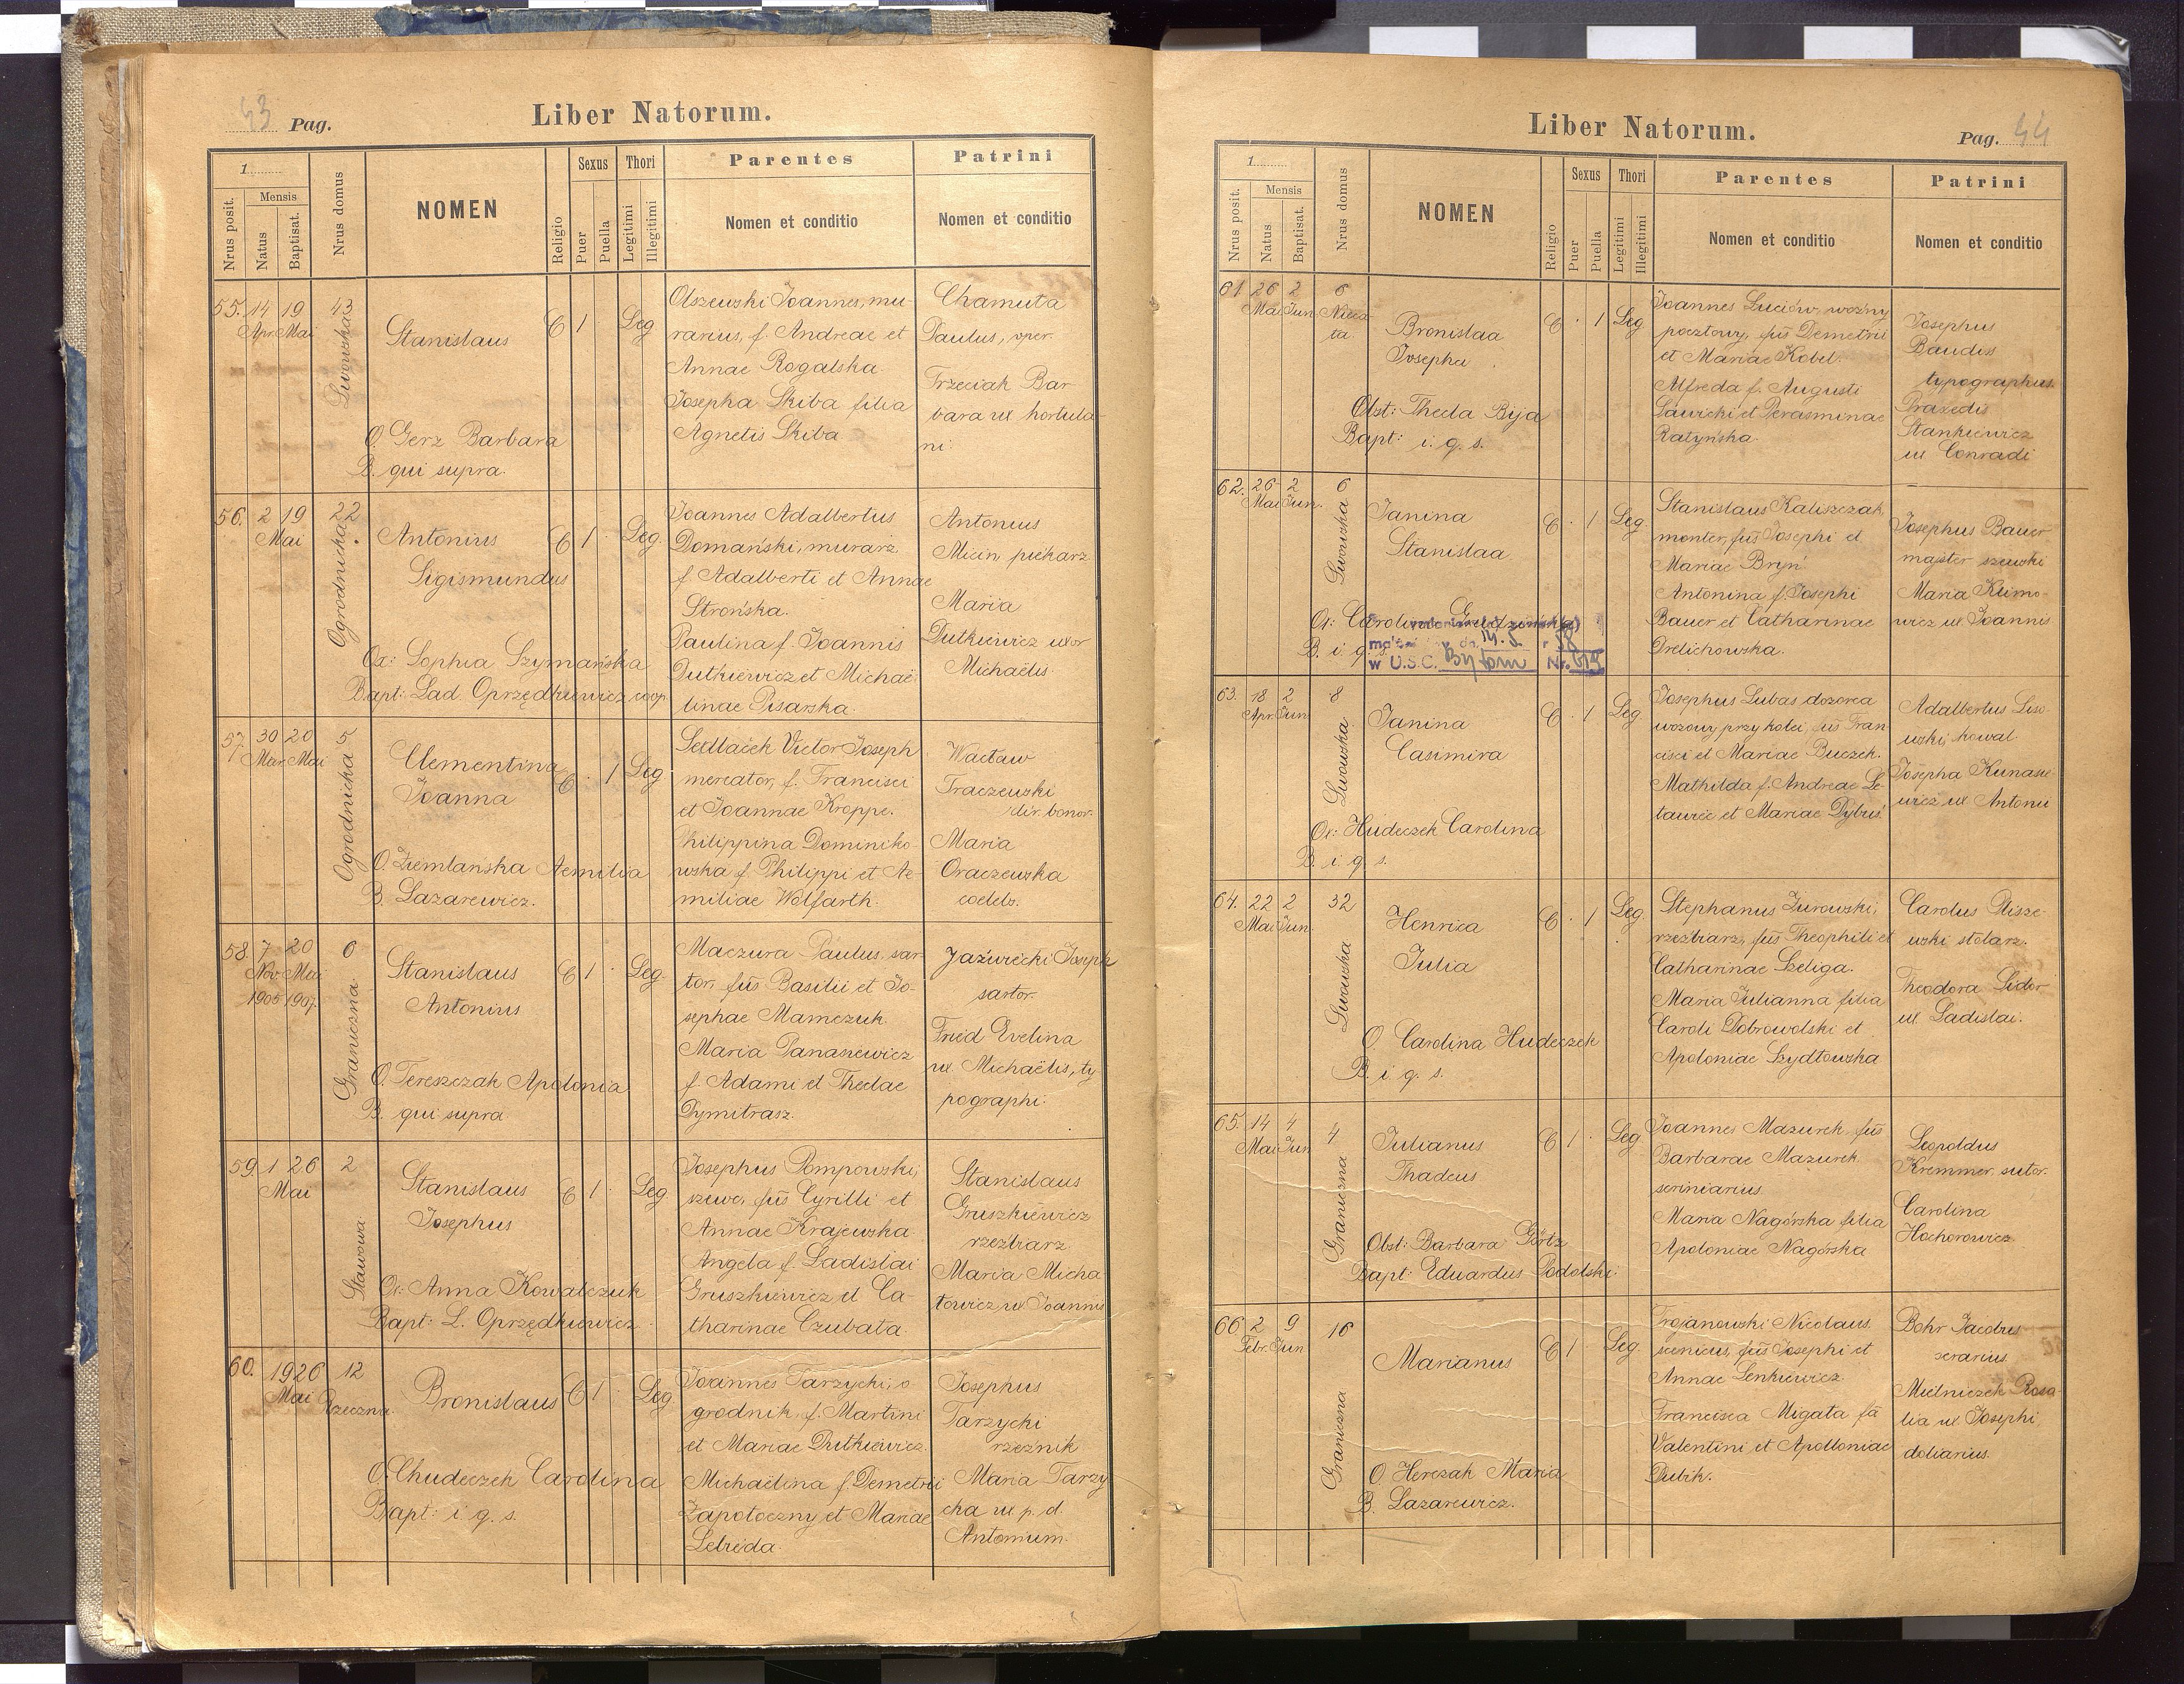 43 Pag.
Liber Natorum.
1
Nrus posit.
Mensis
Natus
Baptisat.
Nrus domus
NOMEN
Religio
Sexus
Puer
Puella
Thori
Legitimi
Illegitimi
Parentes
Nomen et conditio
Patrini
Nomen et conditio
55. 14 19
Apr. Mai
43
Lwowska
Stanislaus
O. Gerz Barbara
B. qui supra.
C 1 Leg
Olszewski Joannes, mu-
rarius, f. Andreae et
Annae Rogalska.
Josepha Skiba filia
Agnetis Skiba
Chamuta
Paulus, oper.
Trzeciak Bar
bara ux hortula-
ni.
56. 2 19
Mai
22
Ogrodnicka
Antonius
Sigismundus
Ox: Sophia Szymańska
Bapt: Lad Oprzędkiewicz, coop.
C 1 Leg.
Joannes Adalbertus
Domański, murarz
f Adalberti et Annae
Strońska.
Paulina f. Joannis
Dutkiewicz et Michaë-
linae Pisarska.
Antonius
Micin, piekarz
Maria
Dutkiewicz uxor
Michaëlis.
57. 30 20
Mar. Mai
5
Ogrodnicka
Clementina
Joanna
O. Ziemlańska Aemilia
B. Lazarewicz.
C 1 Leg
Sedlaček Victor Joseph
mercator, f. Francisci
et Joannae Kroppe.
Philippina Dominiko-
wska f. Philippi et Ae-
miliae Wolfarth.
Wacław
Traczewski
dir. bonor.
Maria
Oraczewska
coelebs.
58. 7 20
Nov. Mai
1905 1907.
0
Graniczna
Stanislaus
Antonius
O. Tereszczak Apolonia
B. qui supra
C 1 Leg.
Maczura Paulus, sar-
tor, fus Basilii et Jo-
sephae Mamczuk.
Maria Panasiewicz
f. Adami et Theclae
Dymitrasz.
Jazurecki Joseph
sartor.
Fried Evelina
ux. Michaëlis, ty
pographi.
59. 1 26
Mai
2
Stawowa
Stanislaus
Josephus
Ox: Anna Kowalczuk
Bapt: L. Oprzędkiewicz
C 1 Leg.
Josephus Pompowski,
szewc, fus Cyrilli et
Annae Krajewska
Angela f. Ladislai
Gruszkiewicz et Ca-
tharinae Czubata.
Stanislaus
Gruszkiewicz
rzeźbiarz
Maria Micha
łowicz, ux. Joannis
60. 19 26
Mai
12
Rzeczna.
Bronislaus
O. Chudeczek Carolina
Bapt: i. q. s.
C 1 Leg.
Joannes Tarzycki, o
grodnik, f. Martini
et Mariae Dutkiewicz.
Michaëlina f. Demetrii
Zapotoczny et Mariae
Lebreda.
Josephus
Tarzycki
rzeźnik
Maria Tarzy
cka ux. p. d.
Antonium.
Liber Natorum.
Pag. 44
1
Nrus posit.
Mensis
Natus
Baptisat.
Nrus domus
NOMEN
Religio
Sexus
Puer
Puella
Thori
Legitimi
Illegitimi
Parentes
Nomen et conditio
Patrini
Nomen et conditio
61. 26 2
Mai Jun.
6
Bronislaa
Josepha
Obst: Thecla Bija
Bapt: i. q. s.
C. 1 Leg
Joannes Luciów, woźny
pocztowy, fus Demetrii
et Mariae Kobel.
Alfreda f. Augusti
Sawicki et Perasminae
Ratyńska.
Josephus
Baudiss
typographus.
Praxedis
Stankiewicz
ux. Conradi
62. 26 2
Mai Jun.
6
Lwowska
Janina
Stanislaa
B. i. q. s.
14. 5. 58
w U.S.C. Bytom Nr.
C. 1 Leg.
Stanislaus Kaliszczak,
monter, fus Josephi et
Mariae Bryń
Antonina f. Josephi
Bauer et Catharinae
Drelichowska.
Josephus Bauer
majster szewski
Maria Klimo-
wicz ux. Joannis
63. 18 2
Apr. Jun
8
Lwowska
Janina
Casimira
Ox: Hudeczek Carolina
B. i. q. s.
C. 1 Leg.
Josephus Lubas dozorca
wozowy przy kolei, fus Fran
cisci et Mariae Buczek.
Mathilda f. Andreae Le-
tawiec et Mariae Dybuś.
Adalbertus Liso
wski, kowal.
Josepha Kunase
wicz ux. Antonii
64. 22 2
Mai Jun.
32
Lwowska
Henrica
Julia
O. Carolina Hudeczek
B. i. q. s.
C. 1 Leg.
Stephanus Jurowski,
rzeźbiarz, fus Theophili et
Catharinae Szeliga.
Maria Julianna filia
Caroli Dobrowolski et
Apoloniae Szydłowska.
Carolus Olsze-
wski stolarz.
Theodora Sidor
ux. Ladislai.
65. 14 4
Mai Jun
4
Graniczna
Julianus
Thadeus
Obst: Barbara Görtz
Bapt: Eduardus Podolski.
C 1 Leg
Joannes Mazurek, fus
Barbarae Mazurek.
scriniarius.
Maria Nagórska filia
Apoloniae Nagórska
Leopoldus
Kremmer, sutor.
Carolina
Hochorowicz
66. 2 9
Febr. Jun
16
Graniczna
Marianus
O. Herczak Maria
B. Lazarewicz.
C 1 Leg.
Trojanowski Nicolaus
scenicus, fus Josephi et
Annae Senkiewicz.
Francisca Migata fa
Valentini et Apolloniae
Dubik.
Bohr Jacobus
serarius.
Mielniczek Rosa-
lia ux. Josephi,
doliarius.